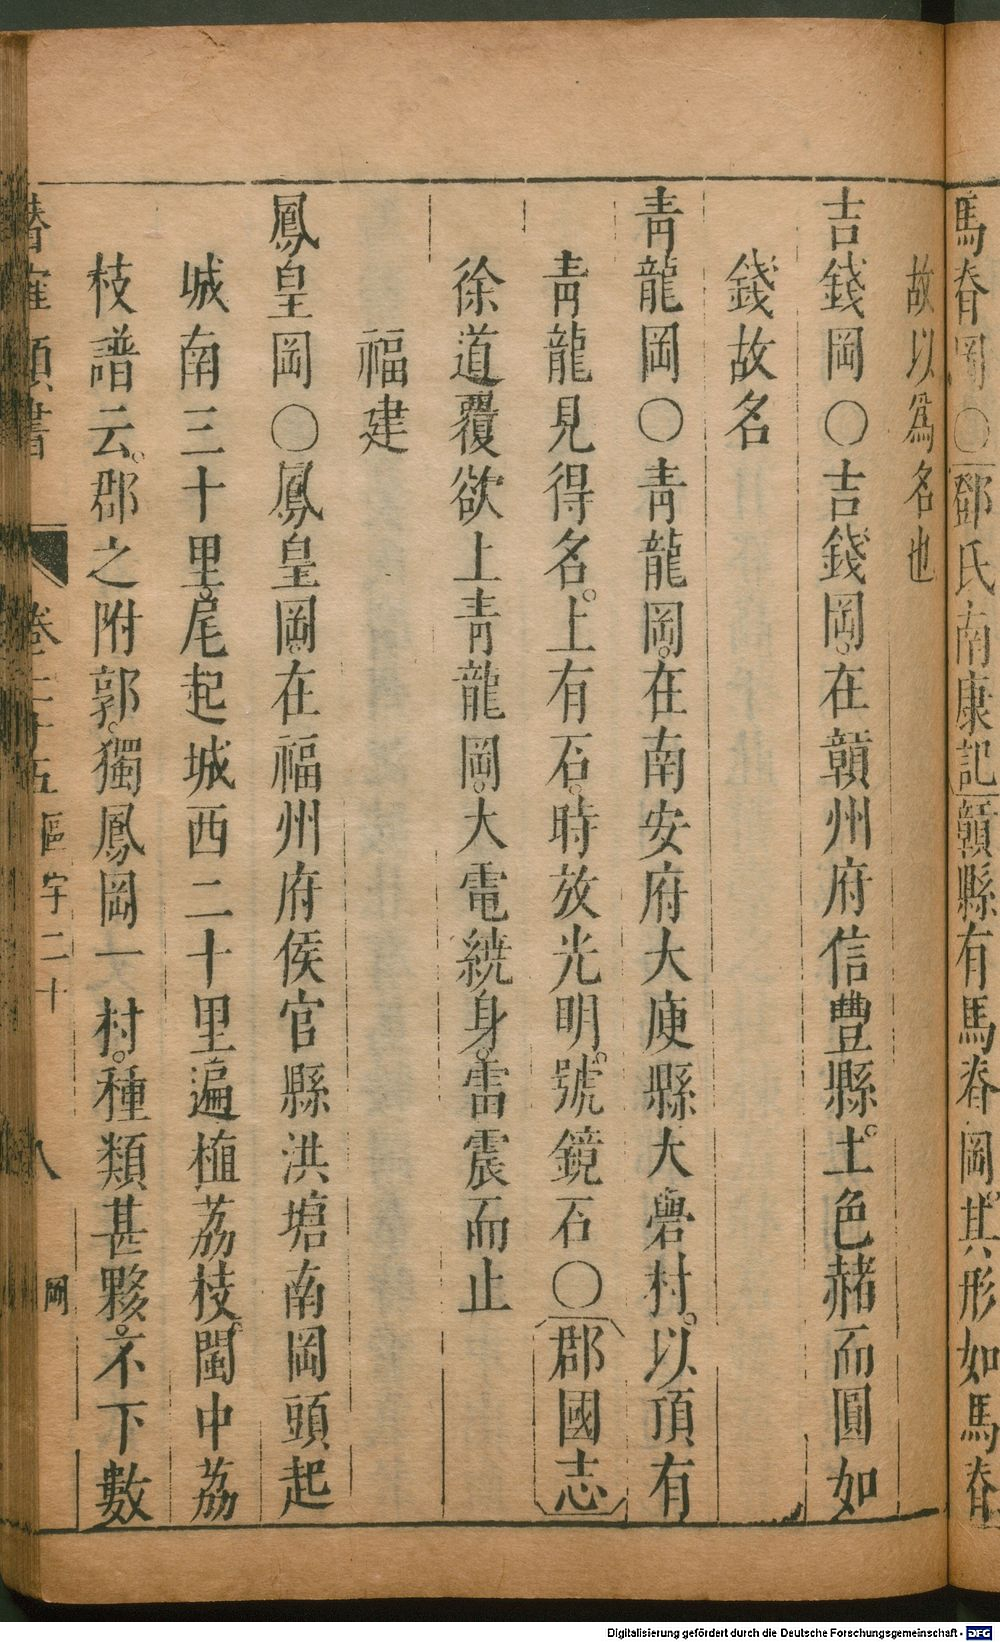 馬脊岡〇鄧氏南康記贛縣有馬脊岡。其形如馬脊
故以爲名也
吉錢岡〇吉錢岡。在贛州府信豐縣。土色赭而圓如
錢故名
青龍岡〇青龍岡。在南安府大庾縣大礐村。以頂有
青龍見得名。上有石。時放光明。號鏡石〇郡國志
徐道覆欲上青龍岡。大電繞身。雷震而止
福建
鳳皇岡〇鳳皇岡。在福州府侯官縣洪塘南岡頭起
城南三十里。尾起城西二十里遍植荔枝。閩中荔
枝譜云。郡之附郭。獨鳳岡一村。種類甚夥。不下數
潛確類書 卷二十五 區宇二十 八 岡
Digitalisierung gefördert durch die Deutsche Forschungsgemeinschaft - DFG